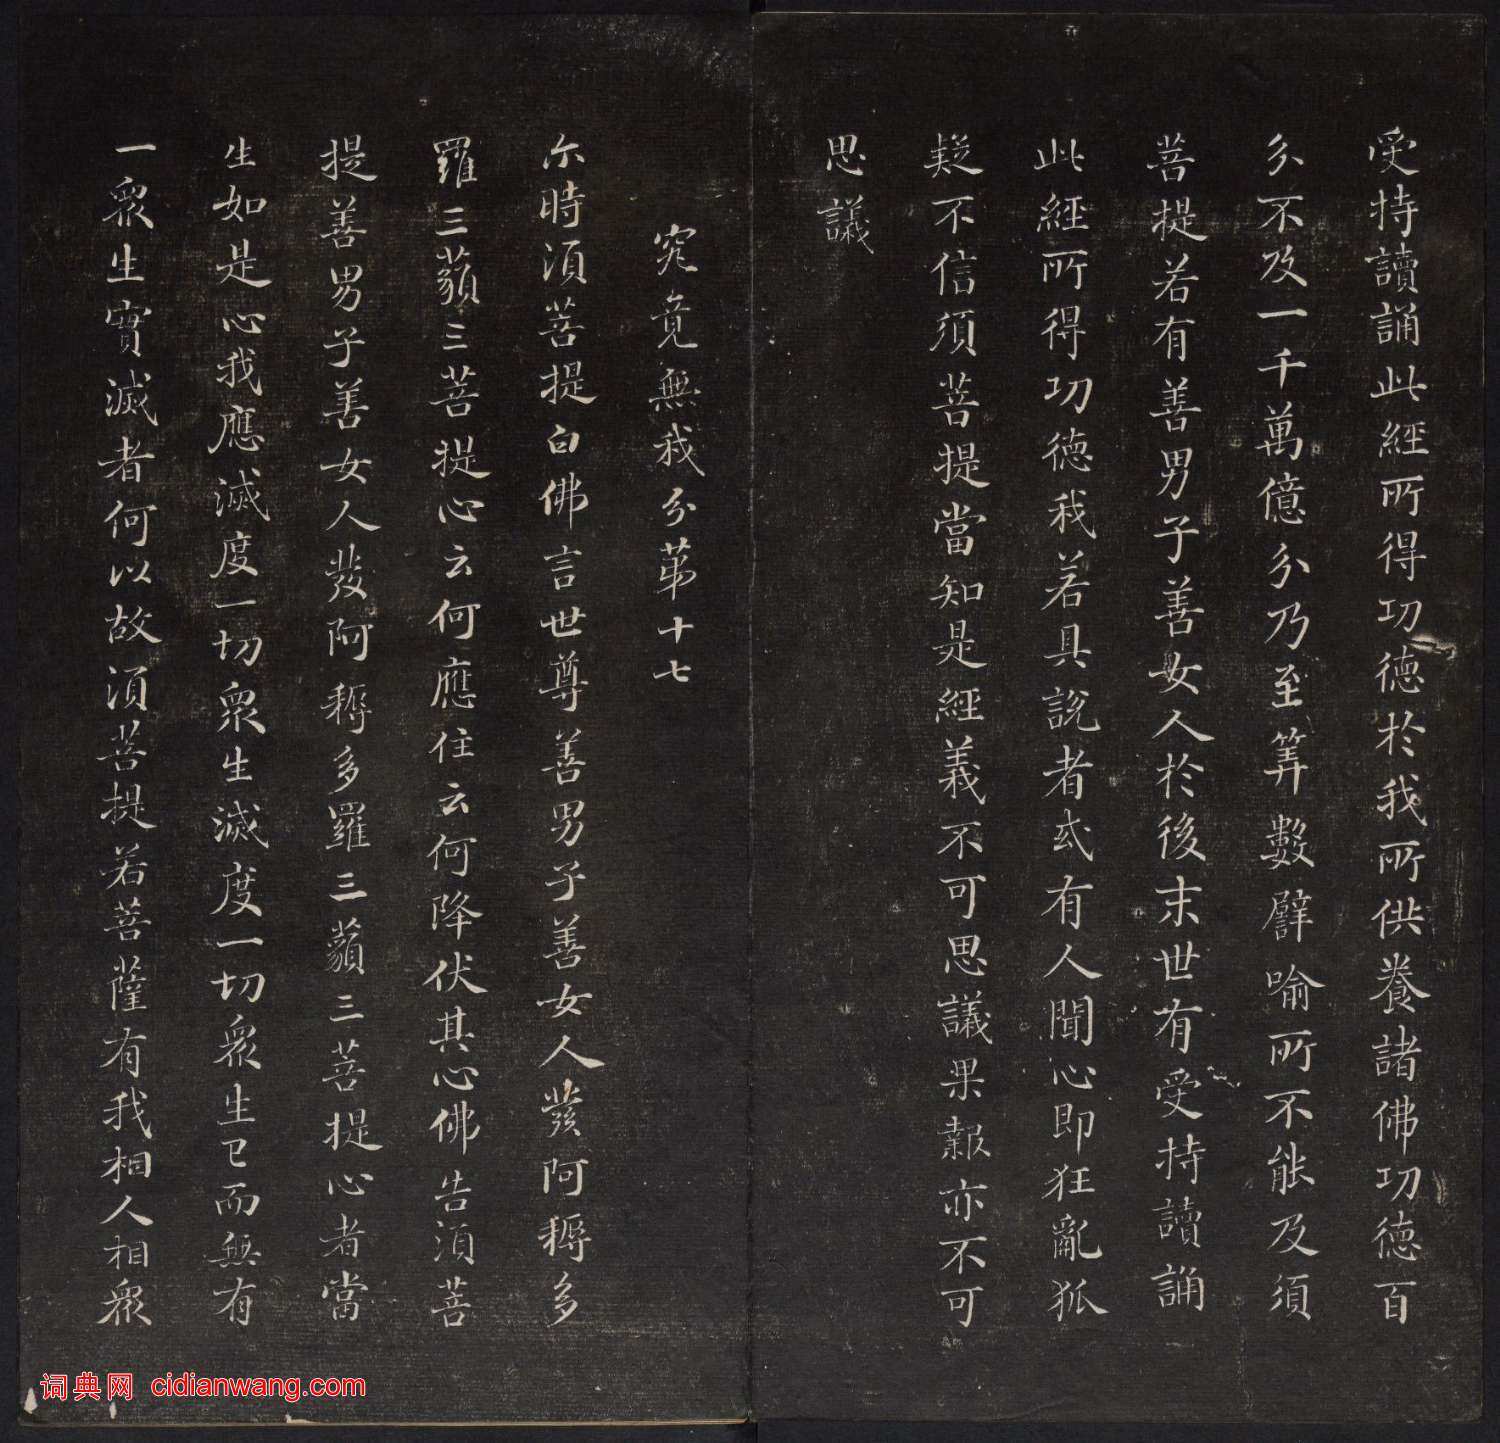 受持讀誦此經所得功德於我所供養諸佛功德百
分不及一千萬億分乃至筭數譬喻所不能及須
菩提若有善男子善女人於後末世有受持讀誦
此經所得功德我若具說者或有人聞心即狂亂狐
疑不信須菩提當知是經義不可思議果報亦不可
思議
究竟無我分第十七
尒時須菩提白佛言世尊善男子善女人發阿耨多
羅三藐三菩提心云何應住云何降伏其心佛告須菩
提善男子善女人發阿耨多羅三藐三菩提心者當
生如是心我應滅度一切眾生滅度一切眾生已而無有
一眾生實滅者何以故須菩提若菩薩有我相人相眾
词典网 cidianwang.com